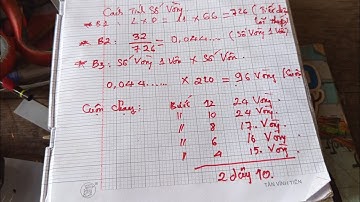 Cách Tính Số Vòng
* B1: L x D = 11 x 66 = 726 (Tiết diện lõi thép)
* B2: 32/726 = 0,044... (Số Vòng 1 Vôn)
* B3: Số Vòng 1 Vôn x Số Vôn
0,044...... x 220 = 9,6 Vòng (Cuộn
Cuộn chạy: Bước 12 24 Vòng
" 10 24 Vòng
" 8 17 Vòng
" 6 16 Vòng
" 4 15 Vòng
2 dây 70.
TÂN VĨNH TIẾN